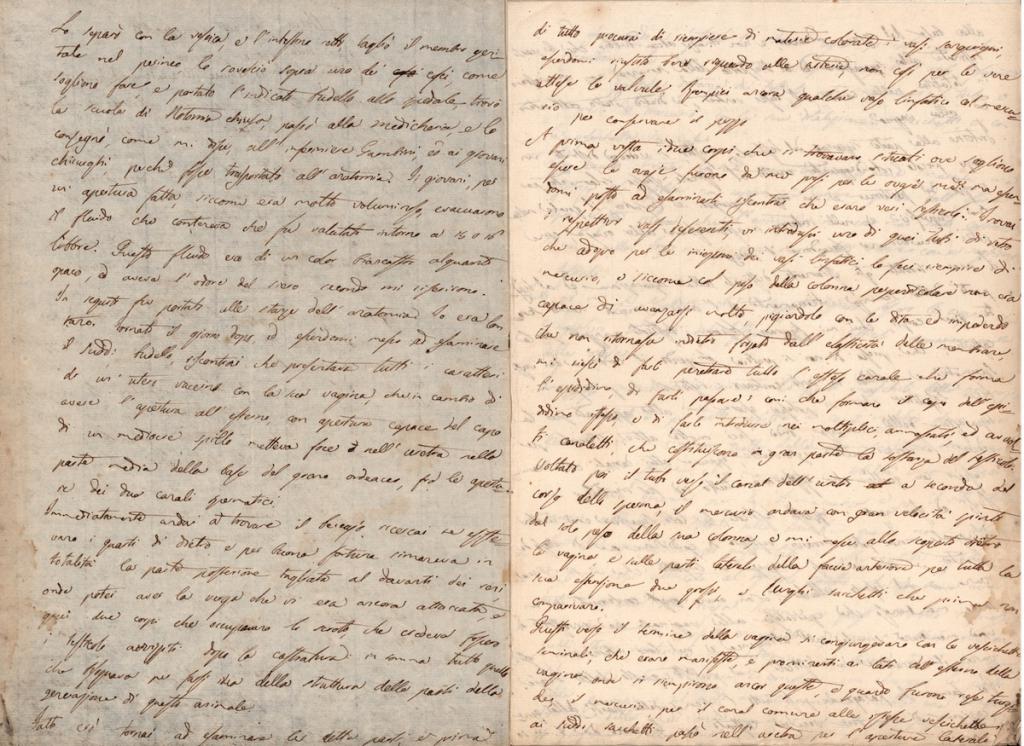 Lo separò con la vescica, e l'intestino retto tagliò il membro geni-
tale nel perineo lo rovesciò sopra uno de così come
sogliono fare e portato l'indicato fudello allo spedale, trovò
la scuola di Notomia chiusa, passò alla medicheria, e lo
consegnò, come mi disse, all'infermiere Gambini, ed ai giovani
chirurghi, perchè fosse trasportato all'anatomia. I giovani, per
un'apertura fatta siccome era molto voluminoso, evacuarono
il fluido che conteneva che fu valutato intorno a 16 o 18
libbre. Questo fluido era di un color biancastro alquanto
opaco, ed aveva l'odore del siero secondo mi riferirono.
In seguito fu portato alle stanze dell'anatomia. Io era lon
tano. tornato il giorno dopo, ed essendomi messo ad esaminare
il sudd.o fudello, riscontrai che presentava tutti i caratteri
di un'utero vaccino con la sua vagina, che in cambio di
avere l'apertura all'esterno, con apertura capace del capo
di un mediocre spillo metteva foce nell'uretra nella
parte media della base del grano ordeaceo, fra le apertu-
re dei due canali spermatici.
Immediatamente andai a trovare il
vano i quarti di dietro e per buona fortuna rimaneva in
totalità la parte posteriore tagliata al davanti dei reni
onde potei aver la verga che vi era ancora attaccata, e
quei due corpi che occupavano lo scroto che credeva fossero
testicoli dopo la castratura: in somma tutto quello
che bisognava per farsi idea della struttura delle parti della
generazione di questo animale.
Fatto ciò tornai ad esaminare la detta parte, e prima
di tutto procurai di riempiere di materie colorate i vasi sanguigni,
essendomi riuscito bene riguardo alle arterie non così per le vene
attese le valvule. Riempii ancora qualche vaso linfatico col mercu
rio per conservare il pezzo
A prima vista i due corpi, che si trovavano situati ove sogliono
essere le ovaje furono da me presi per le ovaje medesime ma essen
domi posto ad esaminarli riscontrai che erano veri testicoli. Trovai
i respettivi vasi deferenti, vi introdussi uno di quei tubi di vetro
che adopro per le iniezioni dei vasi linfatici lo feci riempire di
mercurio, e siccome col peso della colonna perpendicolare non era
capace di avanzarsi molto, pigiandolo con le dita ed impedendo
che non ritornasse indietro forzato dall'elasticità delle membrane
mi riescì di farli penetrare tutto l'istesso canale che forma
l'epididimo, di farli passare i coni che formano il capo dell'epi
didimo istesso, e di farlo introdurre nei moltiplici, ammassati ed avvol
ti canaletti, che costituiscono in gran parte la sostanza del testicolo.
Voltato poi il tubo verso il canal dell'uretra a seconda del
corso dello sperma, il mercurio andava con gran velocità spinto
dal solo peso della sua colonna, e mi messe allo scoperto dietro
la vagina e sulle parti laterali della faccia anteriore per tutta la
sua estensione due grossi e lunghi sacchetti che prima non
comparivano.
Questi verso il termine della vagina si congiungevano con le vescichette
seminali, che erano manifeste, e prominenti ai lati dell'esterno della
vagina, onde si riempirono ancor queste, e quando furono rese turgi
de, il mercurio per il canal comune alle stesse vescichette ed
ai sudd.i sacchetti passò nell'uretra per l'aperture laterali